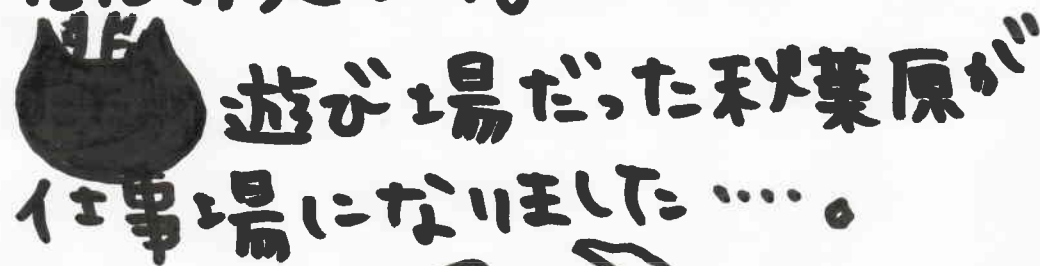 遊び場だった秋葉原が
仕事場になりました‥‥。